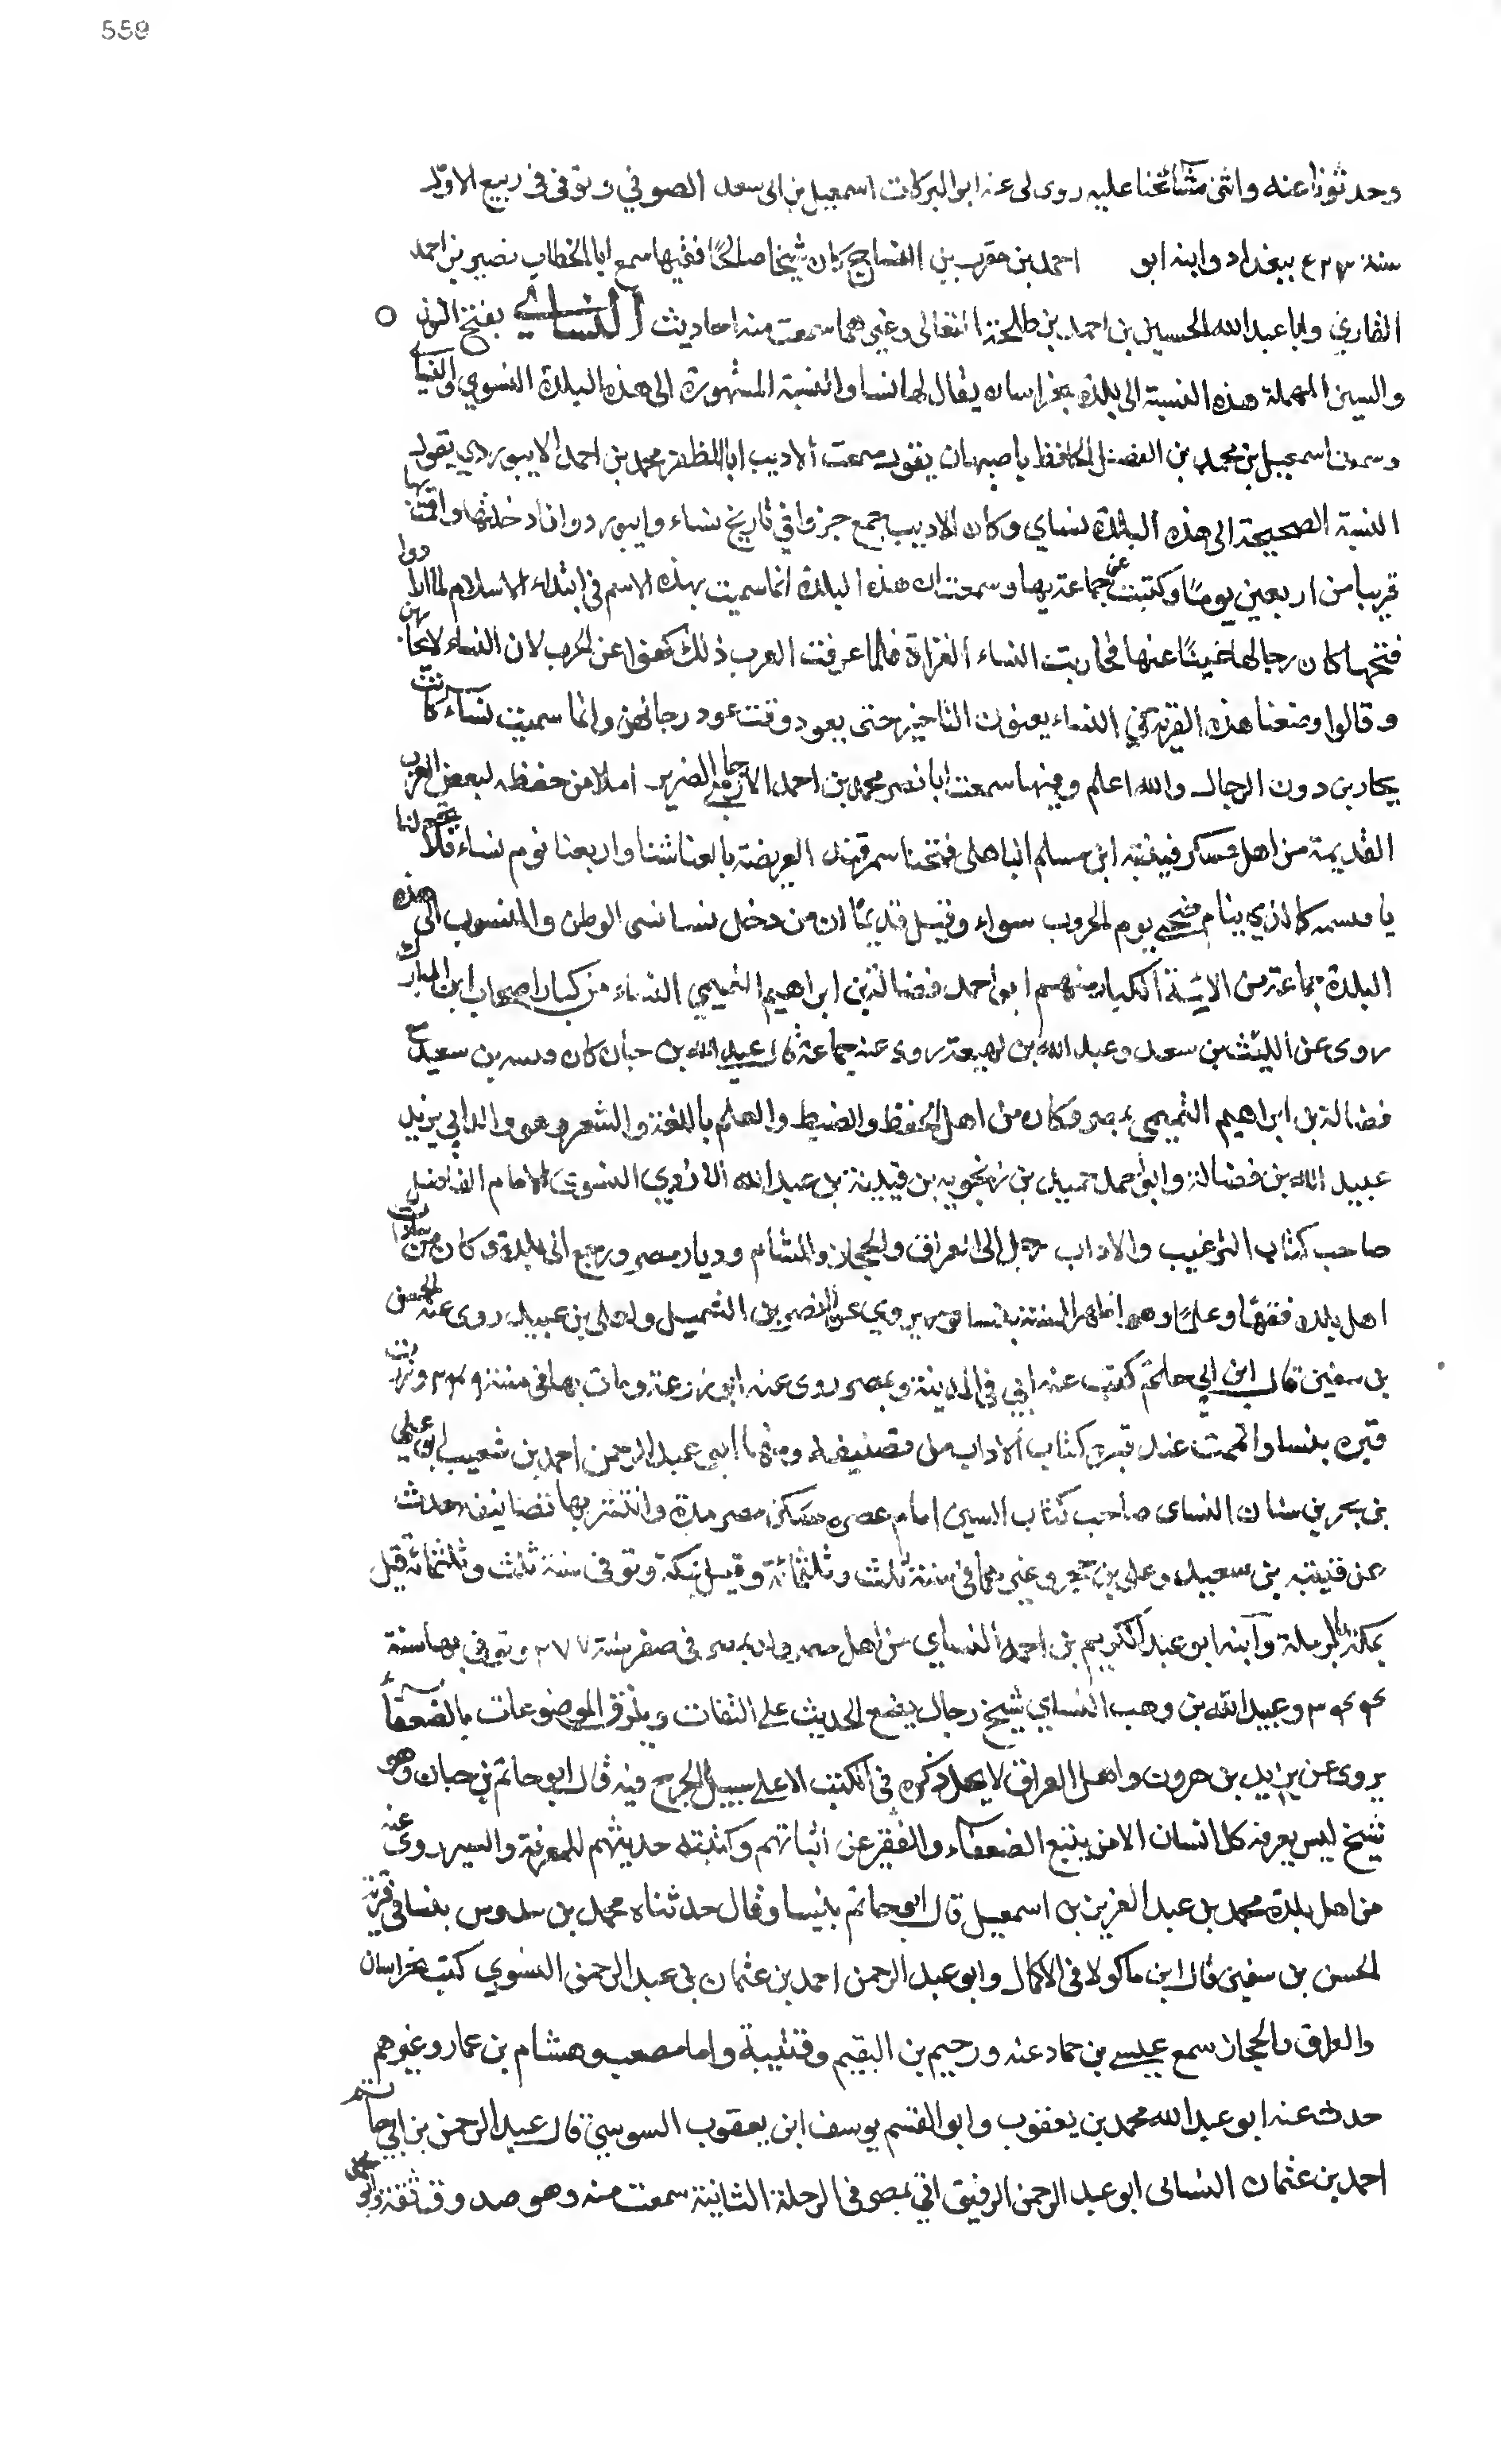 559
وحدثونا عنه واثنى مشائخنا عليه روى لى عنه ابو البركات اسمعيل بن ابى سعد الصوفي وتوفى فى ربيع الاول
سنة ببغداد وابنه ابو احمد بن مقرب بن النساج كان شيخا صالحًا فقيها سمع ابا الخطاب نصير بن احمد
القاري وابا عبد الله الحسين بن احمد بن طلحة النعالى وغيرهما سمعت منه احاديث النساي بفتح النون
والسين المهملة هذه النسبة الى بلدة بخراسان يقال لها نسا والنسبة المشهورة الى هذه البلدة النسوي والنساي
وسمعت اسمعيل بن محمد بن الفضل الحافظ باصبهان يقول سمعت الاديب ابا المظفر محمد بن احمد الابيوردي يقول
النسبة الصحيحة الى هذه البلدة نساي وكان الاديب جمع جزوا في تاريخ نساء وابيورد وانا دخلتها واقمت بها
قريبا من اربعين يومًا وكتبت عن جماعة بها وسمعت ان هذه البلدة انما سميت بهذا الاسم فى ابتداء الاسلام لما ارادوا
فتحها كان رجالها غيبًا عنها فحاربت النساء الغزاة فلما عرفت العرب ذلك كفوا عن الحرب لان النساء لا يحاربن
وقالوا وضعنا هذه القرية في النساء يعنون التاخير حتى يعود وقت عود رجالهن وانما سميت نسآء كانت
يحاربن دون الرجال والله اعلم ومنها سمعت ابا نصر محمد بن احمد الارجاهي الضرير املا من حفظه لبعض العرب
القديمة من اهل عسكر قتيبة ابن مسلم الباهلى فتحنا سمرقند العريضة بالعنا شتنا واربعنا نوم نساء فلا تجعلنا
يا قسمه كالذي ينام ضحى يوم الحروب سواء وقيل قديمًا ان من دخل نسا نسى الوطن والمنسوب الى هذه
البلدة جماعة من الايمة الكبار منهم ابو احمد فضالة بن ابراهيم التميمي النساء من كبار اصحاب ابن المبارك
روى عن الليث بن سعد وعبد الله بن لهيعة روى عنه جماعة قال عبد الله بن حبان كان وسه بن سعيد مع
فضالة بن ابراهيم التميمي بمصر وكان من اهل الحفظ والضبط والعلم باللغة والشعر وهو والد ابي يزيد
عبيد الله بن فضالة وابو احمد حميد بن زنجويه بن قتيبة بن عبد الله الازدي النسوي الامام الفاضل
صاحب كتاب الترغيب والاداب رحل الى العراق والحجاز والشام وديار مصر ورجع الى بلدة وكان من سادات
اهل بلده فقهًا وعلمًا وهو اظهر السنة بنسا يروي عن النضر بن الشميل ويعلى بن عبيد روى عنه الحسن
بن سفين قال ابن ابي حاتم كتب عنه ابي فى المدينة وبمصر روى عنه ابو زرعة ومات بها فى سنة وزرت
قبره بنسا واقمت عند قبره كتاب الاداب من تصنيفه ومنها ابو عبد الرحمن احمد بن شعيب بن على
بن بحر بن سنان النساى صاحب كتاب السنن امام عصره سكن مصر مدة وانتشر بها تصانيفه حدث
عن قتيبة بن سعيد وعلى بن حجر وغيرهما فى سنة ثلث وثلثمائة وقيل بمكة وتوفى سنة ثلث وثلثمائه قيل
بمكة بالرملة وابنه ابو عبد الكريم بن احمد النساي من اهل مصر ولد بمصر فى صفر سنة ٢٧٧ وتوفي بها سنة
وعبيد الله بن وهب النساي شيخ رجال يضع الحديث على الثقات ويلزق الموضوعات بالضعفآء
يروى عن يزيد بن هرون واهل العراق لا يحل ذكره فى الكتب الا على سبيل الجرح فيه قال ابو حاتم بن حبان وهو
شيخ ليس يعرفه كل انسان الا من يتتبع الضعفاء والفقر عن اثباتهم وكتبته حديثهم للمعرفة والسير روى عنه
من اهل بلدة محمد بن عبد العزيز بن اسمعيل قال ابو حاتم بنيسا وقال حدثناه محمد بن سدوس بنسا فى قرية
الحسن بن سفين قال ابن ماكولا فى الاكمال وابو عبد الرحمن احمد بن عثمان بن عبد الرحمن النسوي كتب بخراسان
والعراق والحجاز سمع عيسى بن حماد عنه ورحيم بن اليتيم وقتيبة وابا مصعب وهشام بن عمار وغيرهم
حدث عنه ابو عبد الله محمد بن يعقوب وابو القسم يوسف ابن يعقوب السوسي قال عبد الرحمن بن ابي حاتم
احمد بن عثمان النسائى ابو عبد الرحمن الرفيق ابي بمصر فى الرحلة الثانية سمعت منه وهو صدوق ثقة وابو محمد